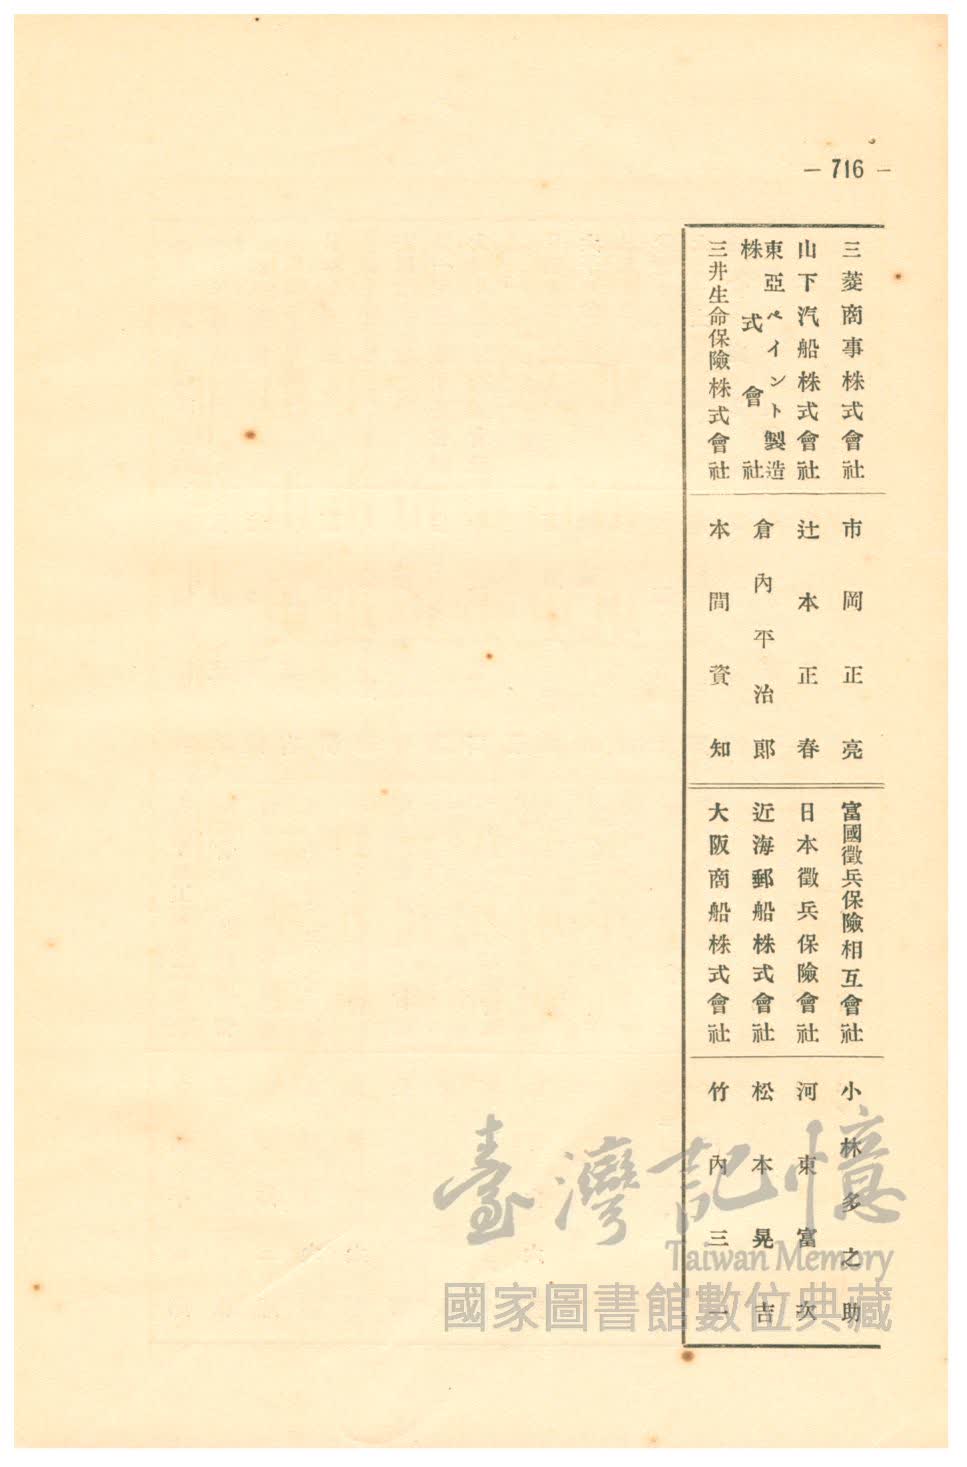 — 716 —
三菱商事株式會社 市岡正亮 富國徵兵保險相互會社 小林多之助
山下汽船株式會社 辻本正春 日本徵兵保險會社 河東富次
東亞ペイント製造株式會社 倉內平治郎 近海郵船株式會社 松本晃吉
三井生命保險株式會社 本間資知 大阪商船株式會社 竹內三一
臺灣記憶
Taiwan Memory
國家圖書館數位典藏